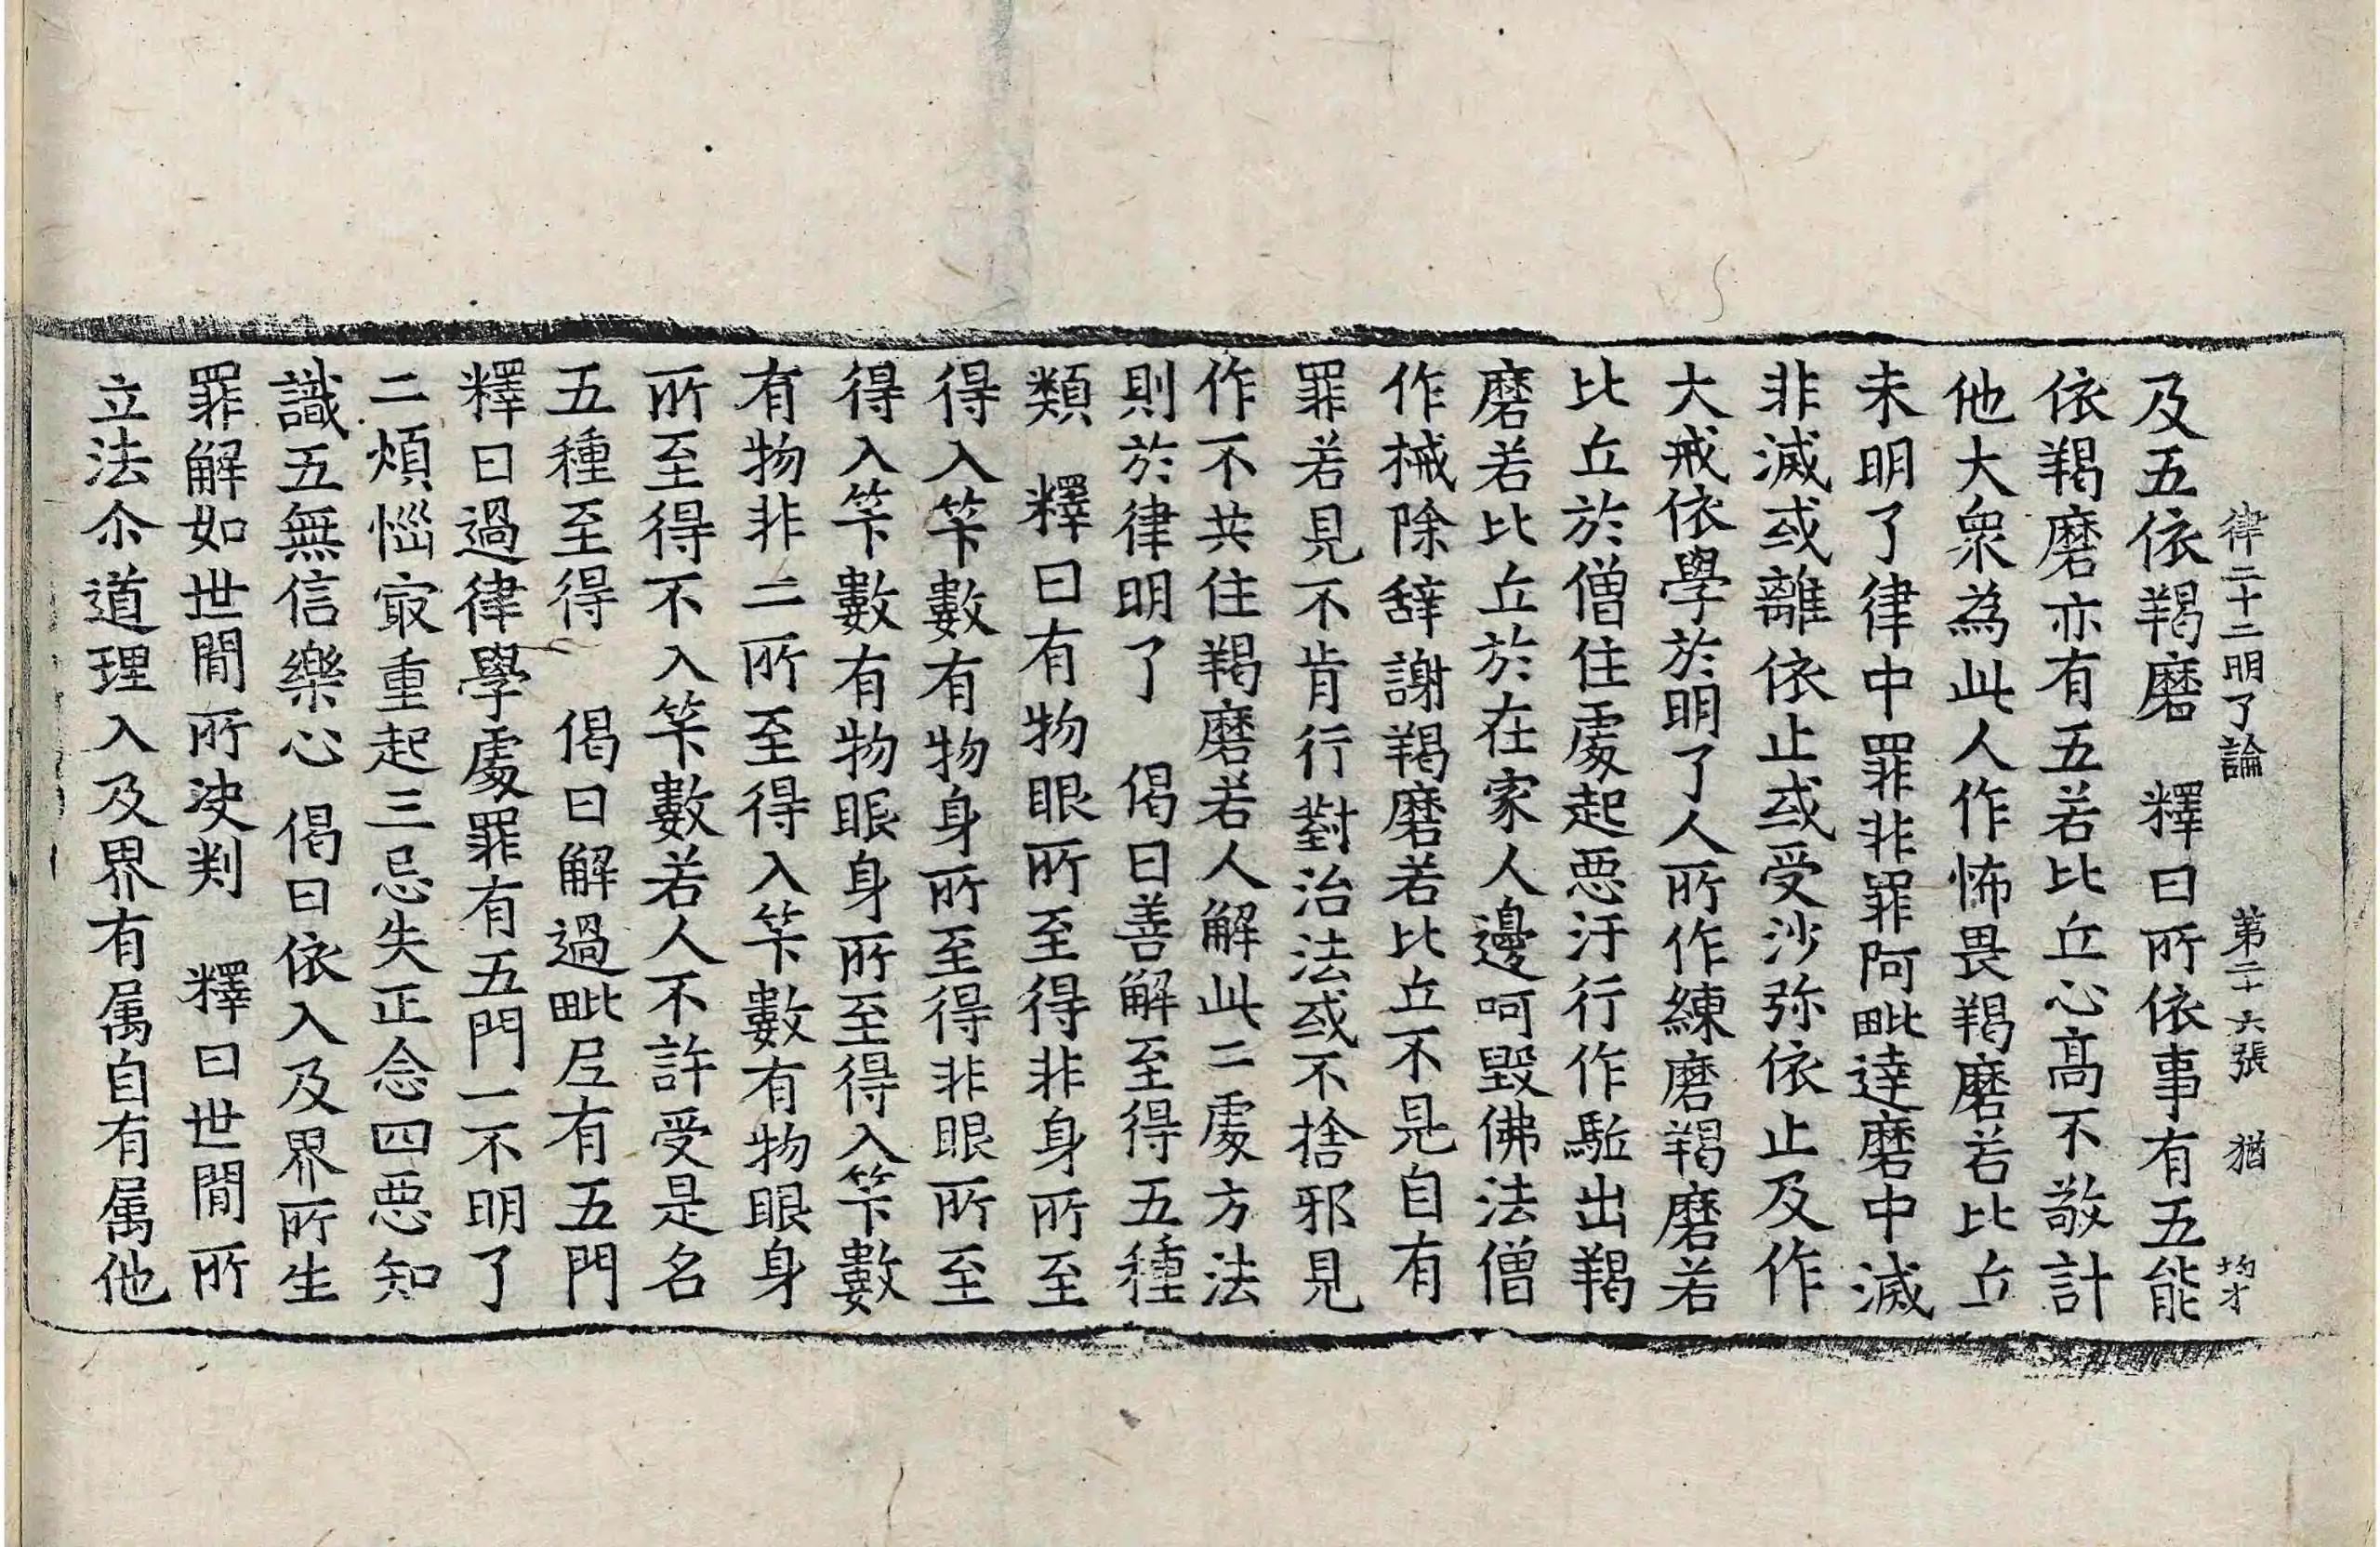 律二十二明了論　第二十六張　猶　均才
及五依羯磨　釋曰所依事有五能
依羯磨亦有五若比丘心高不敬計
他大衆為此人作怖畏羯磨若比丘
未明了律中罪非罪阿毗達磨中滅
非滅或離依止或受沙弥依止及作
大戒依學於明了人所作練磨羯磨若
比丘於僧住處起惡汙行作駈出羯
磨若比丘於在家人邊呵毀佛法僧
作拭除辞謝羯磨若比丘不見自有
罪若見不肯行對治法或不捨邪見
作不共住羯磨若人解此二處方法
則於律明了　偈曰善解至得五種
類　釋曰有物眼所至得非身所至
得入笇數有物身所至得非眼所至
得入笇數有物眼身所至得入笇數
有物非二所至得入笇數有物眼身
所至得不入笇數若人不許受是名
五種至得　偈曰解過毗尼有五門
釋曰過律學處罪有五門一不明了
二煩惱寂重起三忌失正念四惡知
識五無信樂心　偈曰依入及界所生
罪解如世間所决判　釋曰世間所
立法尒道理入及界有属自有属他